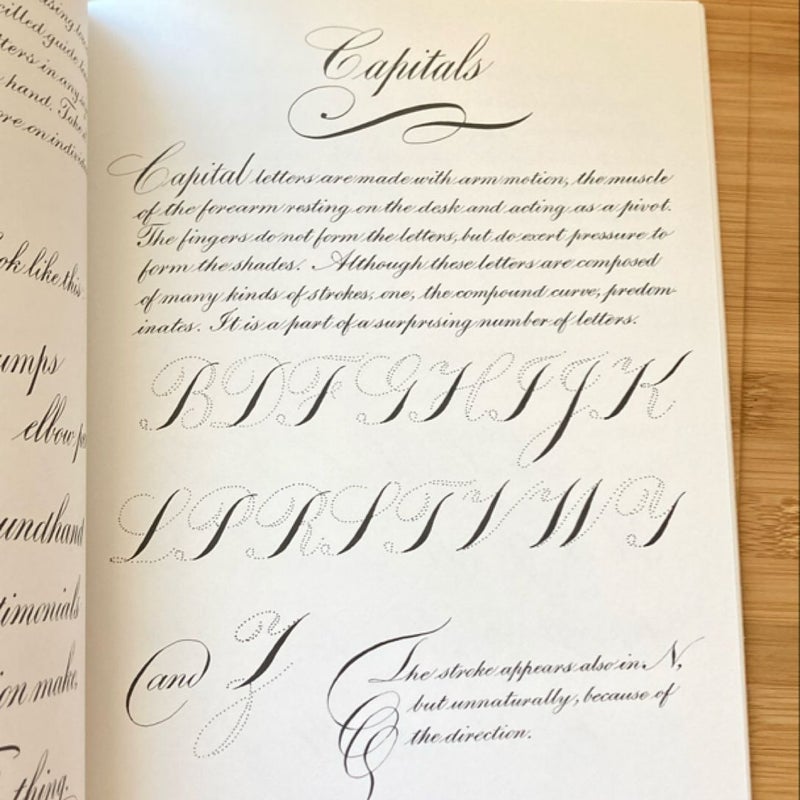 hand. Take
ok like this
umps
elbow
undhand
timonials
on make,
thing.
Capitals
Capital letters are made with arm motion, the muscle
of the forearm resting on the desk and acting as a pivot.
The fingers do not form the letters, but do exert pressure to
form the shades. Although these letters are composed
of many kinds of strokes, one, the compound curve, predom-
inates. It is a part of a surprising number of letters.
B D F G H I J K
L P R S T V W Y
and Z
The stroke appears also in N,
but unnaturally, because of
the direction.